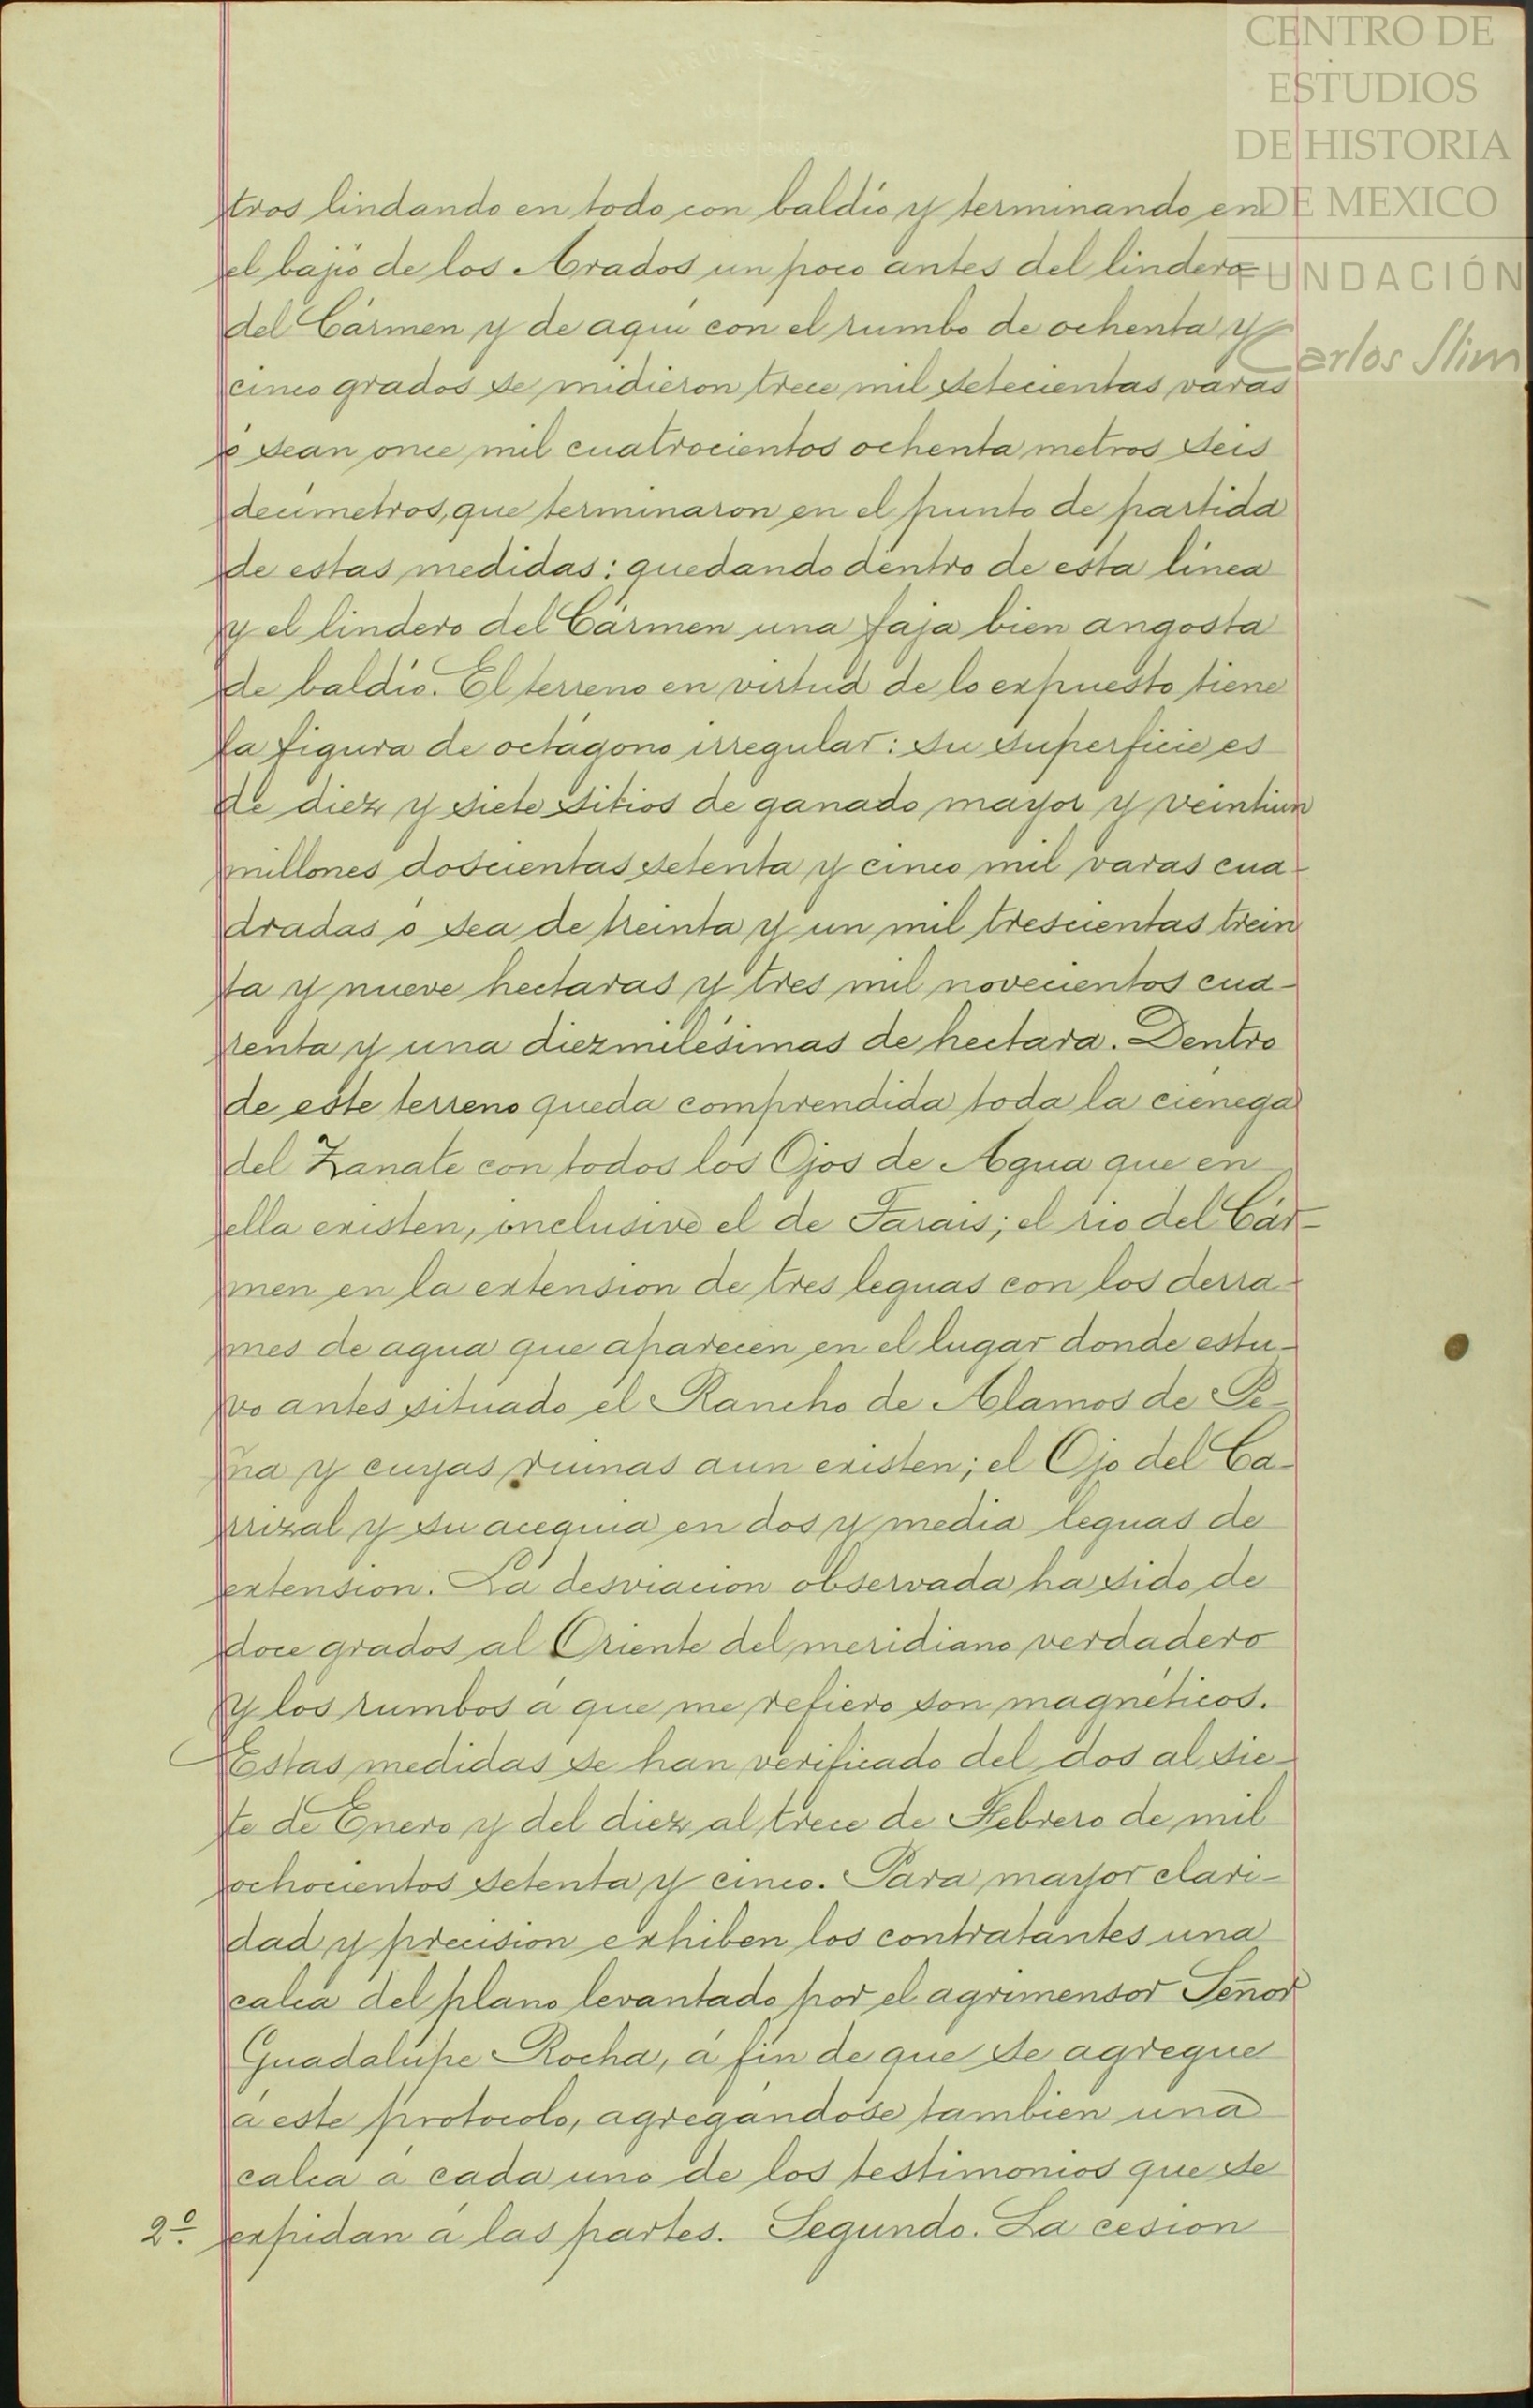 CENTRO DE
ESTUDIOS
DE HISTORIA
DE MEXICO
FUNDACIÓN
Carlos Slim
tros lindando en todo con baldío y terminando en
el bajío de los Arados un poco antes del lindero
del Cármen y de aquí con el rumbo de ochenta y
cinco grados se midieron trece mil setecientas varas
ó sean once mil cuatrocientos ochenta metros seis
decímetros, que terminaron en el punto de partida
de estas medidas: quedando dentro de esta línea
y el lindero del Cármen una faja bien angosta
de baldío. El terreno en virtud de lo expuesto tiene
la figura de octágono irregular: su superficie es
de diez y siete sitios de ganado mayor y veintiun
millones doscientas setenta y cinco mil varas cua-
dradas ó sea de treinta y un mil trescientas trein
ta y nueve hectaras y tres mil novecientos cua-
renta y una diezmilésimas de hectara. Dentro
de este terreno queda comprendida toda la ciénega
del Zanate con todos los Ojos de Agua que en
ella existen, inclusive el de Tarais; el rio del Cár-
men en la extension de tres leguas con los derra-
mes de agua que aparecen en el lugar donde estu-
vo antes situado el Rancho de Alamos de Pe-
ña y cuyas ruinas aun existen; el Ojo del Ca-
rrizal y su acequia en dos y media leguas de
extension. La desviacion observada ha sido de
doce grados al Oriente del meridiano verdadero
y los rumbos á que me refiero son magnéticos.
Estas medidas se han verificado del dos al sie-
te de Enero y del diez al trece de Febrero de mil
ochocientos setenta y cinco. Para mayor clari-
dad y precision exhiben los contratantes una
calca del plano levantado por el agrimensor Señor
Guadalupe Rocha, á fin de que se agregue
á este protocolo, agregándose tambien una
calca á cada uno de los testimonios que se
2º. expidan á las partes. Segundo. La cesion